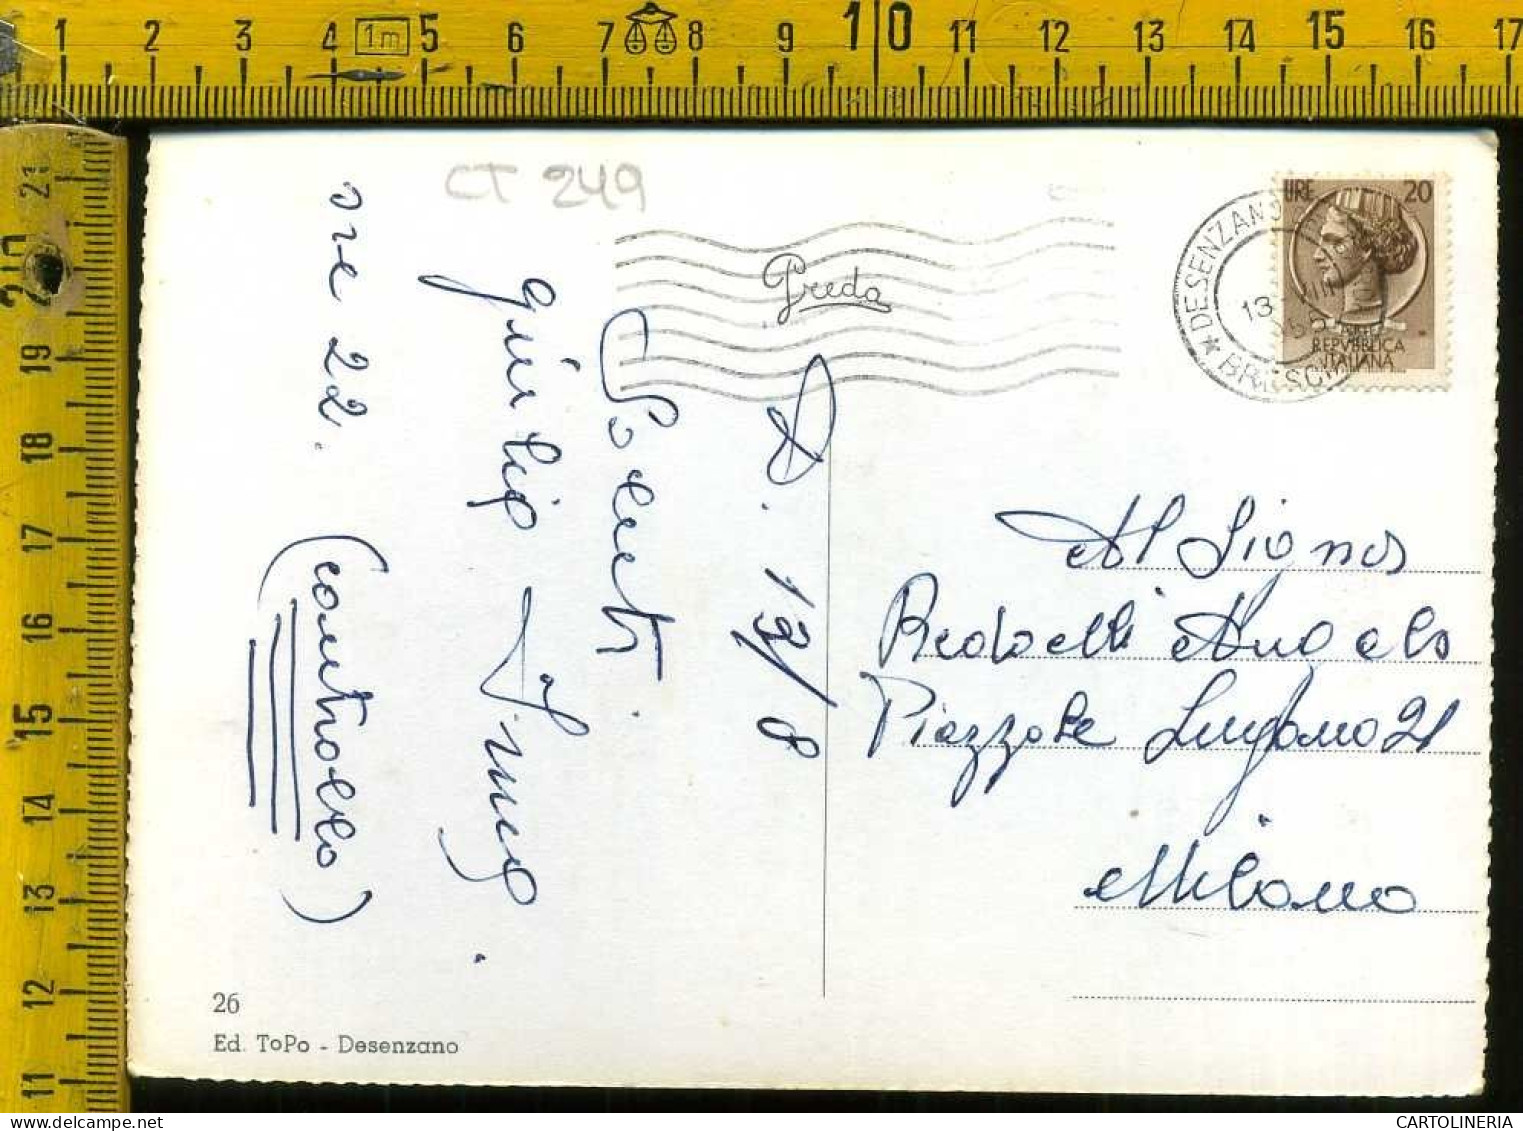 1 2 3 4 1m 5 6 7 8 9 10 11 12 13 14 15 16 17
21
20
19
18
17
16
15
14
13
12
11
CT 249
Preda
DESENZANO
13
BRESCIA
LIRE 20
REPVBBLICA
ITALIANA
D. 13/8
Saluti
ore 22.
(controllo)
Al Signor
Redaelli Angelo
Piazzale Lugano 21
Milano
26
Ed. ToPo - Desenzano
CARTOLINERIA